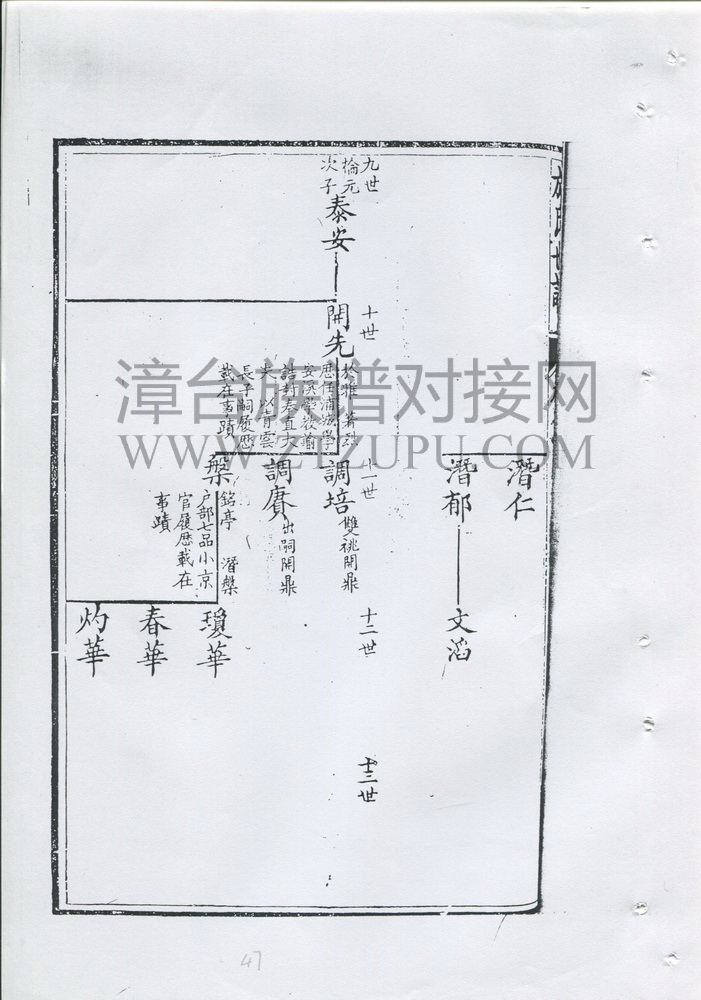 潛仁
潛郁
文滔
九世
棆元
次子
泰安
十世
開先
於雅
大 以青雲
長子嗣履歷
載在事蹟
十一世
調培
雙祧開鼎
調賡
出嗣開鼎
槃
銘亭 潛槃
户部七品小京
官履歷載在
事蹟
十二世
瓊華
春華
灼華
十三世
漳台族谱对接网
WWW.ZTZUPU.COM
47